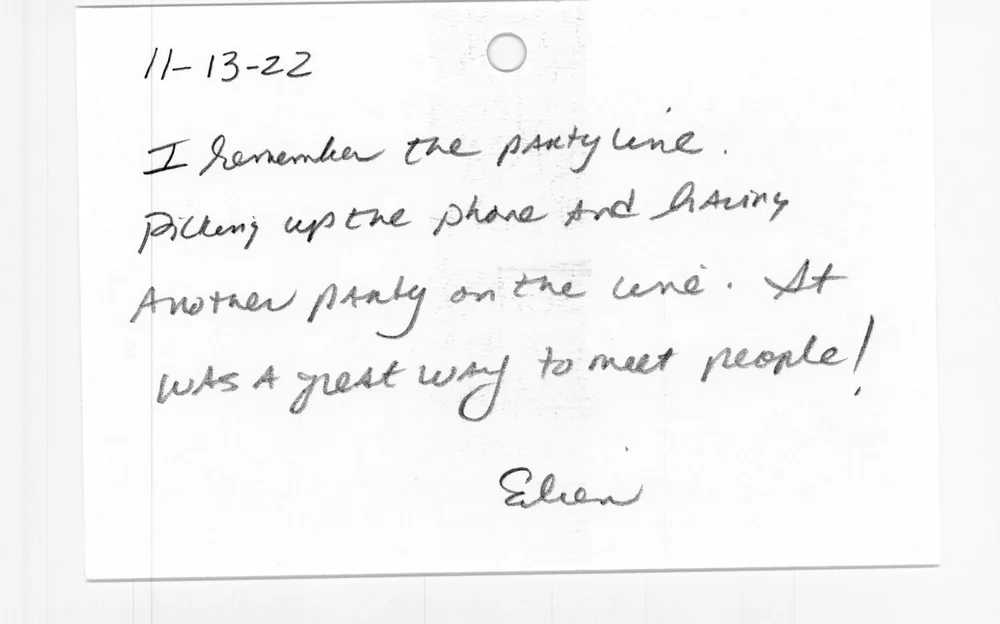 11-13-22
I remember the party line.
Picking up the phone and having
Another party on the line. It
was a great way to meet people!